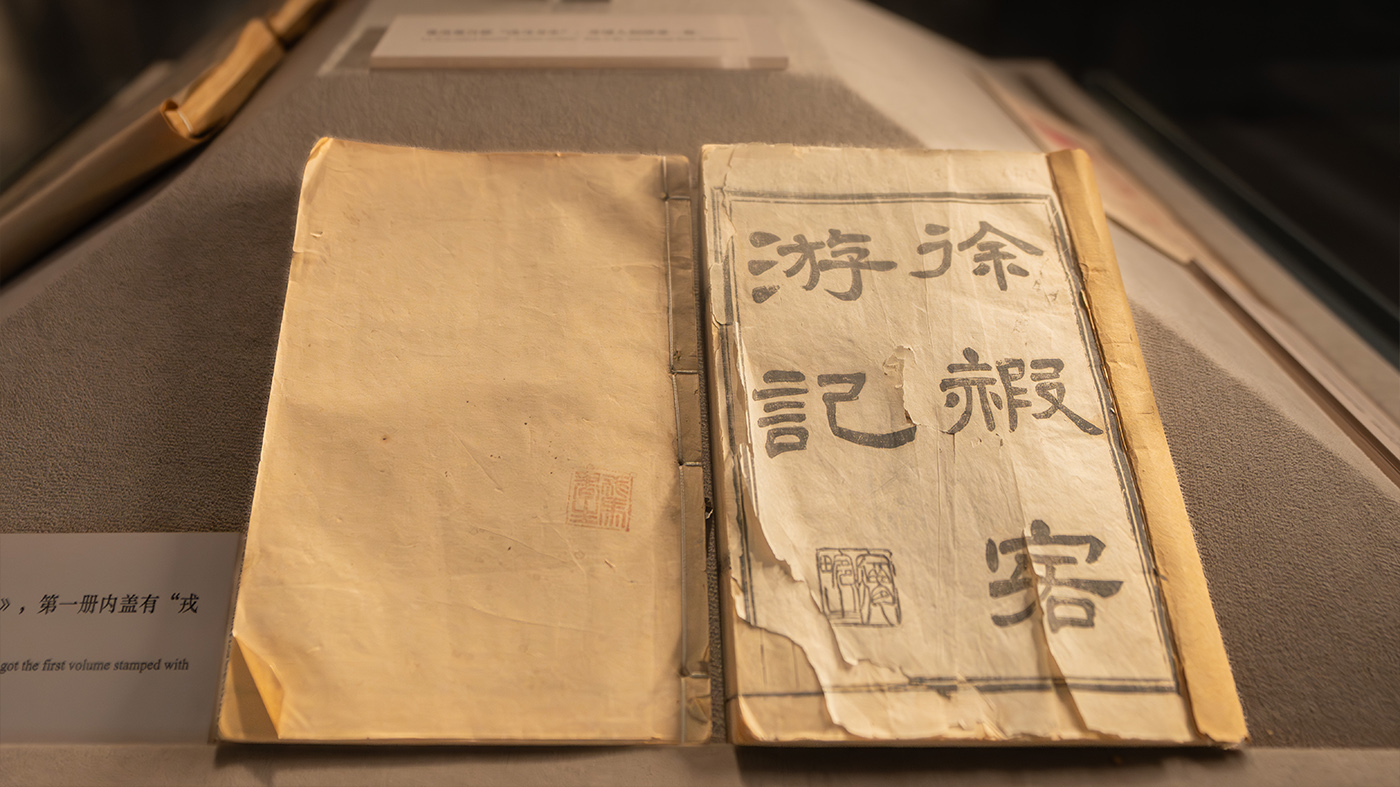 徐赮客
游記
》，第一册内盖有“戎
got the first volume stamped with